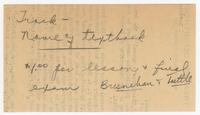 Track —
Name of Textbook
$1.00 for lesson & final
exam Bresnehan & Tuttle